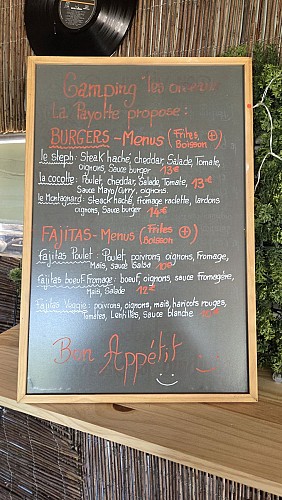 Camping les
La Payotte propose :
BURGERS - Menus (Frites, Boisson ⊕)
le steph : Steak haché, cheddar, Salade, Tomate,
oignons, Sauce burger 13€
la cocotte : Poulet, cheddar, Salade, Tomate, 13€
Sauce Mayo/Curry, oignons.
le Montagnard : steack haché, fromage raclette, lardons
oignons, Sauce burger 14€
FAJITAS - Menus (Frites Boisson ⊕)
Fajitas Poulet : Poulet, poivrons, oignons, Fromage,
Maïs, sauce Salsa
Fajitas boeuf Fromage : boeuf, oignons, sauce fromagère,
Maïs, Salade 12€
Fajitas Veggie : poivrons, oignons, maïs, haricots rouges,
Tomates, Lentilles, Sauce blanche
Bon Appétit